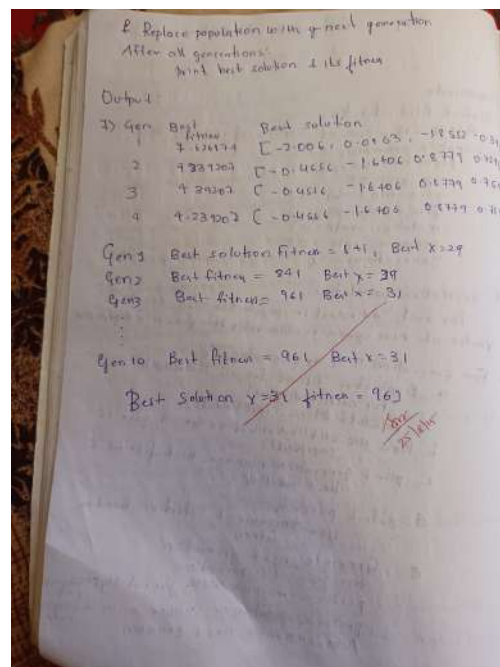 & Replace population with g next generation
After all generations:
print best solution & its fitnes
Output:
Gen Best fitness Best solution
1 [-2.006, 0.0163, -1.8512
2 4.839207 [-0.4656 -1.6406 0.8779
3 [-0.4656 -1.6406 0.8779
4 4.239207 [-0.4656 -1.6406 0.8779
Gen 1 Best solution Fitnes = 841, Best x=29
Gen2 Best fitnes = 841 Best x= 39
Gen3 Best fitnes= 961 Best x= 31
Gen 10 Best fitnes = 961 Best x=31
Best Solution x=31 fitnes = 961